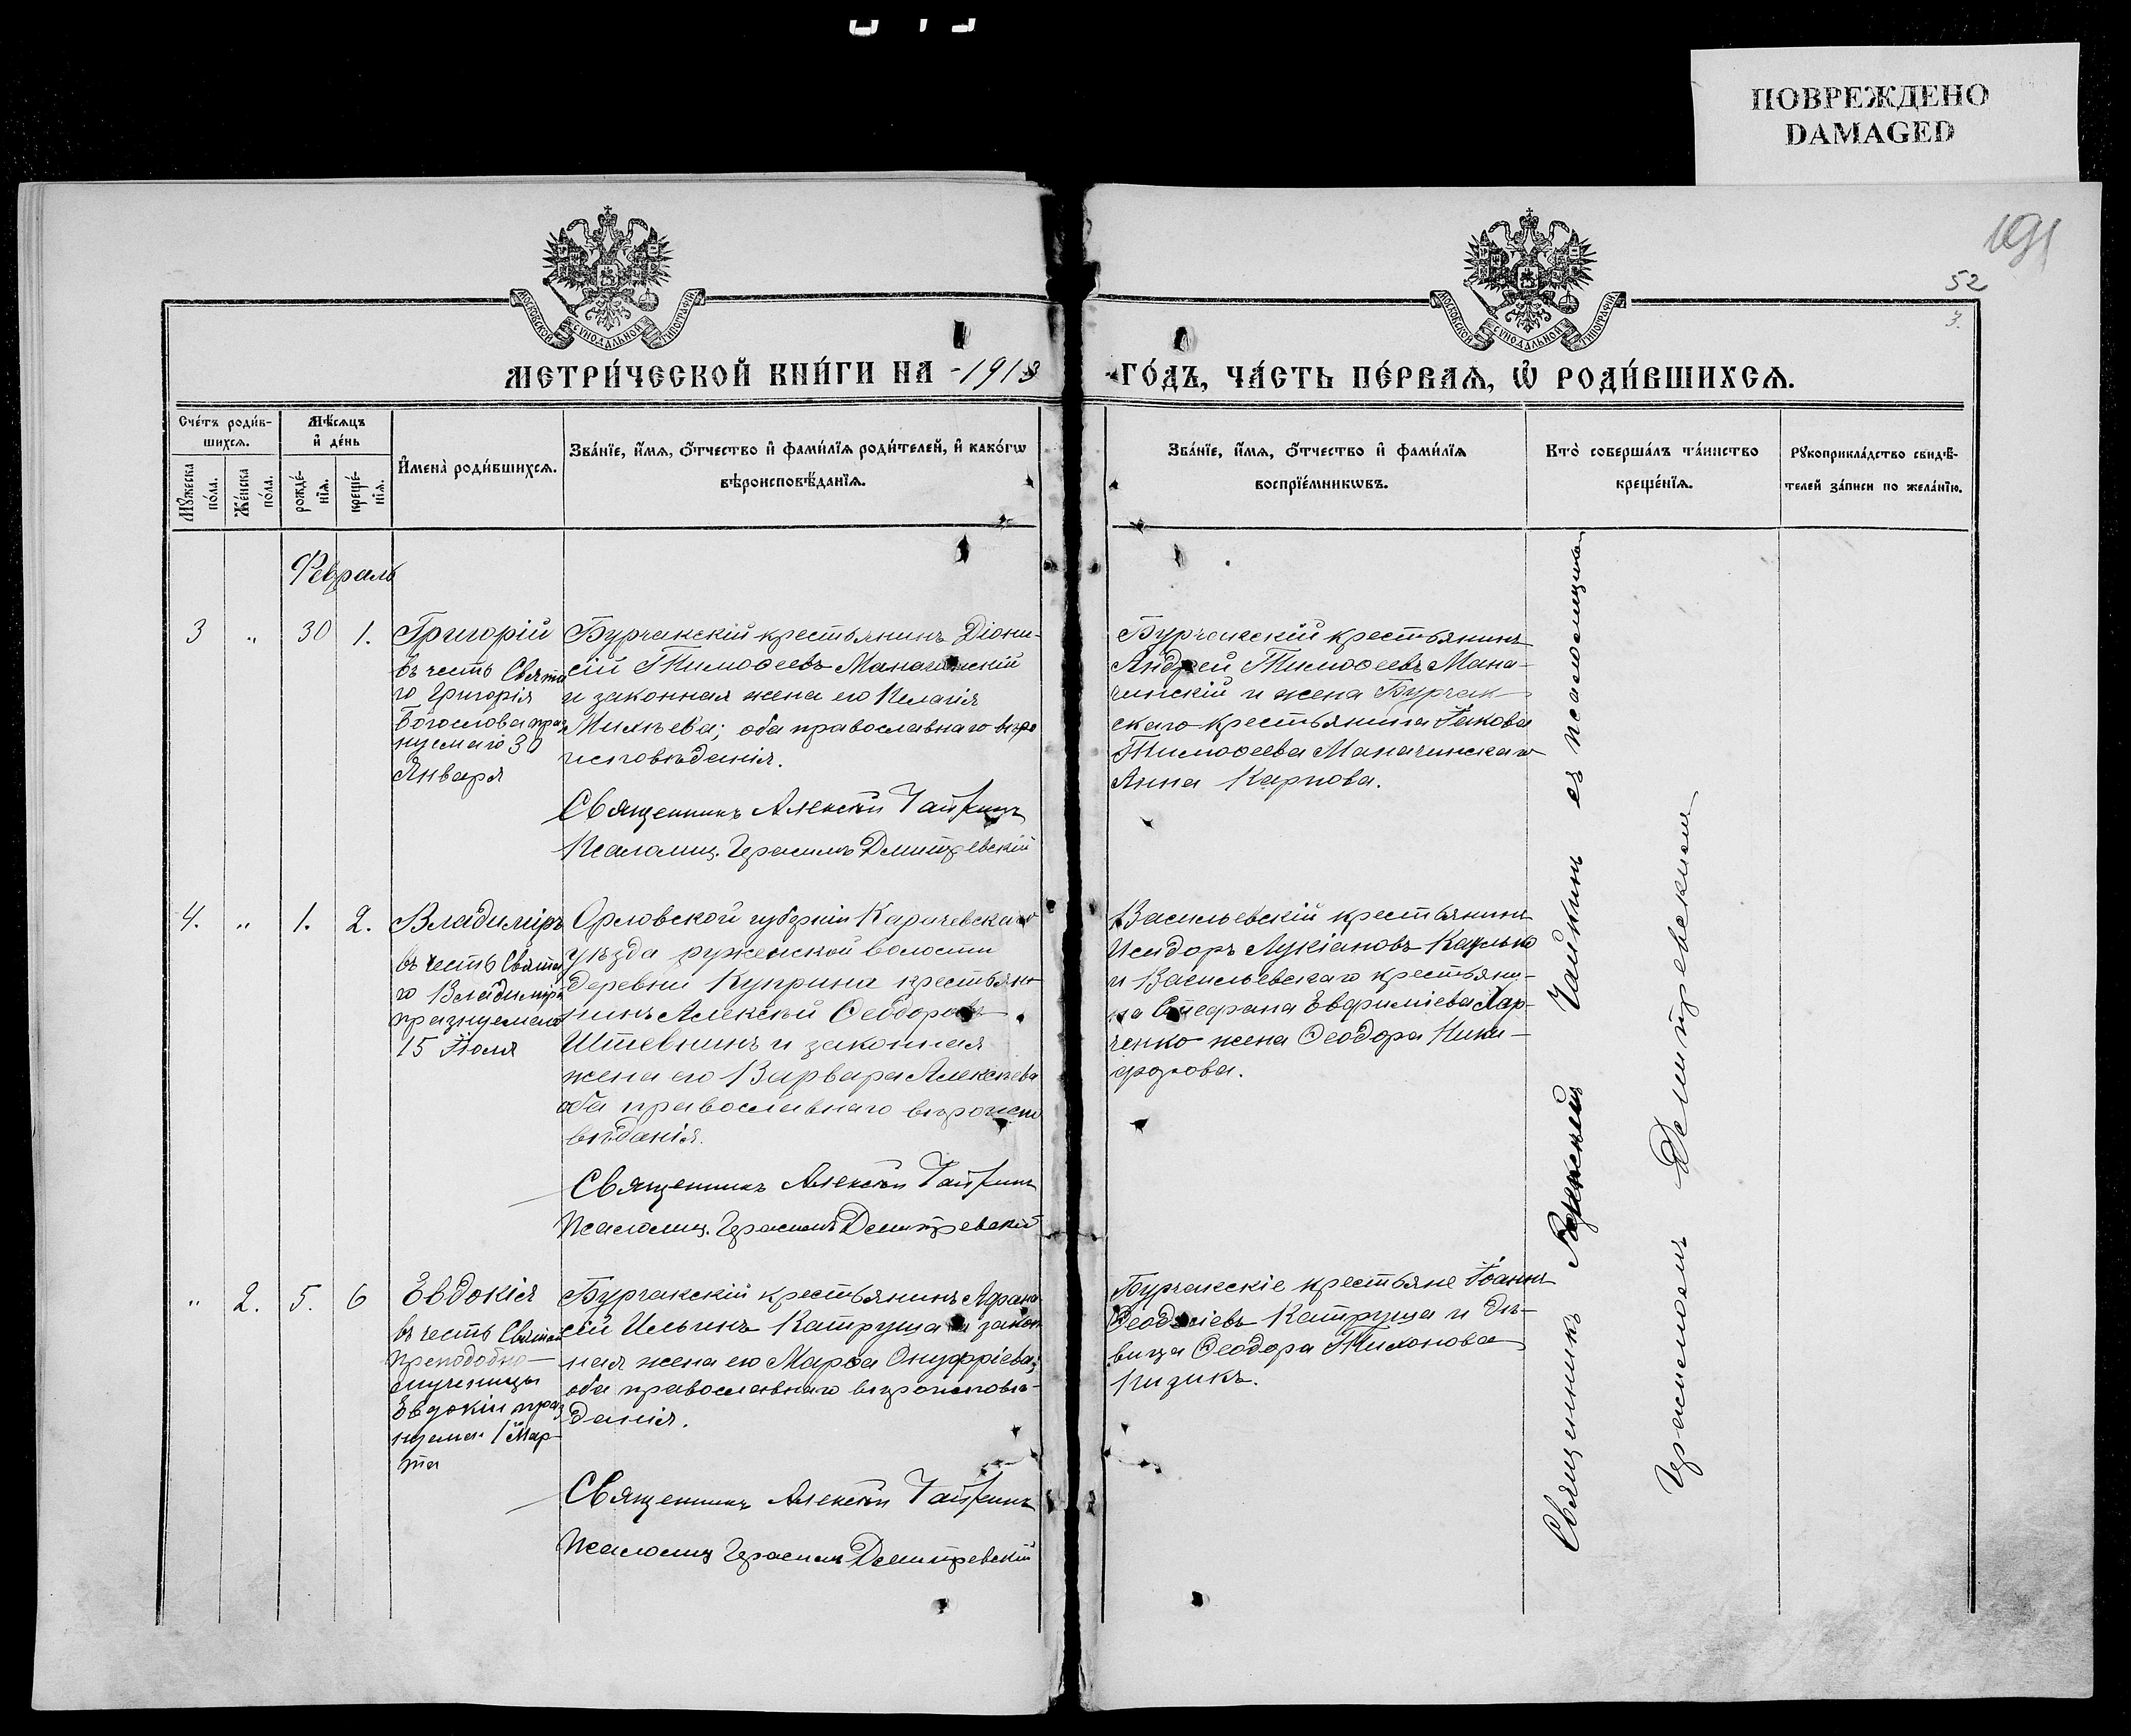 ПОВРЕЖДЕНО
DAMAGED
52
3.
МОСКОВСКОЙ СѴНОДАЛЬНОЙ ТИПОГРАФІИ
МОСКОВСКОЙ СѴНОДАЛЬНОЙ ТИПОГРАФІИ
МЕТРИ́ЧЕСКОЙ КНИ́ГИ НА -1913
ГО́ДЪ, ЧА́СТЬ ПЕ́РВАѦ, Ѡ҆ РОДИ́ВШИХСѦ.
Сче́тъ роди́в-
шихсѧ.
Мꙋ́жеска по́ла.
Же́нска по́ла.
Мѣ́сѧцъ
и҆ де́нь
рожде́-
нїѧ.
креще́-
нїѧ.
И҆мена̀ роди́вшихсѧ.
Зва́нїе, и҆́мѧ, ѻ҆́тчество и҆ фами́лїѧ роди́телей, и҆ како́гѡ
вѣроисповѣ́данїѧ.
Зва́нїе, и҆́мѧ, ѻ҆́тчество и҆ фами́лїѧ
воспрїе́мникѡвъ.
Кто̀ соверша́лъ та́инство
креще́нїѧ.
Рꙋкоприкла́дство свидѣ́-
телей за́писи по жела́нїю.
Февраль
3 " 30 1.
Григорій
въ честь Свята
го Григорія
Богослова праз
нуемаго 30
Января
Бурчакскій крестьянинъ Діони-
сій Тимоѳеевъ Маначинскій
и законная жена его Пелагія
Михѣева; оба православнаго вѣро
исповѣданія.
Священникъ Алексѣй Чайкинъ
Псаломщ. Герасимъ Демитревскій
Бурчакскій крестьянинъ
Андрей Тимоѳеевъ Мана-
чинскій и жена Бурчак-
скаго крестьянина Іакова
Тимоѳеева Маначинскаго
Анна Карпова.
4. " 1. 2.
Владиміръ
въ честь Свята
го Владиміра
празнуемаго
15 Іюля
Орловской губерніи Карачевскаго
уѣзда руженской волости
деревни Куприна крестьян
нинъ Алексѣй Ѳеодоровъ
Штевнинъ и законная
жена его Варвара Алексѣева
оба православнаго вѣроиспо
вѣданія.
Священникъ Алексѣй Чайкинъ
Псаломщ. Герасимъ Демитревскій
Васильевскій крестьянинъ
Исидоръ Лукіановъ
и Васильевскаго крестьяни-
на Стефана Евфиміева Хар-
ченко жена Ѳеодора Ники-
форова.
" 2. 5. 6
Евдокія
въ честь Святой
преподобно-
мученицы
Евдокіи праз
нуемой 1 Мар-
та
Бурчакскій крестьянинъ Афана
сій Ильинъ Катруша и закон
ная жена его Марѳа Онуфріева;
оба православнаго вѣроисповѣ-
данія.
Священникъ Алексѣй Чайкинъ
Псаломщ Герасимъ Демитревскій
Бурчакскіе крестьяне Іоаннъ
Ѳеодосіевъ Катруша и дѣ-
вица Ѳеодора Тихонова
Кизикъ.
Священникъ Алексѣй Чайкинъ съ псаломщикомъ
Герасимомъ Демитревскимъ